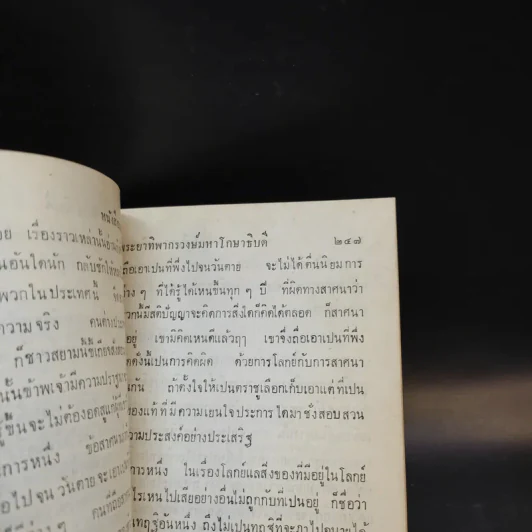 หนังสือ
เรื่องราวเหล่านั้น
นอันใดนัก กลับชักให้
พวกในประเทศนี้
ความจริง คนต่างประเทศ
ก็ชาวสยามนี้
นั้นข้าพเจ้ามีความปรารถนา
ขึ้นจะไม่ต้องอดสูแก่
การหนึ่ง ข้อสาสนา
อไปจนวันตายจะเอา
ต่าง ๆ คนที่มีสติ
พระยาทิพากรวงษ์มหาโกษาธิบดี ๒๔๗
ถือเอาเปนที่พึ่งไปจนวันตาย จะไม่ได้ตื่นนิยมการ
ต่าง ๆ ที่ได้รู้ได้เหนขึ้นทุก ๆ ปี ที่ผิดทางสาศนาว่า
พวกนี้มีสติปัญญาจะคิดการสิ่งใดก็คิดได้ตลอด ก็สาศนา
อยู่ เขามิคิดเหนดีแล้วฤา เขาจึ่งถือเอาเปนที่พึ่ง
ดังนี้เปนการคิดผิด ด้วยการโลกย์กับการสาศนา
กัน ถ้าตั้งใจให้เปนตราชูเลือกเก็บเอาแต่ที่เปน
ของแท้ที่มีความเยนใจประการใดมาชั่งสอบสวน
ความประสงค์อย่างประเสริฐ
การหนึ่ง ในเรื่องโลกย์แลสิ่งของที่มีอยู่ในโลกย์
ไรเหนไปเสียอย่างอื่นไม่ถูกกับที่เปนอยู่ ก็ชื่อว่า
อันหนึ่ง ถึงไม่เปนทฤฐิที่จะภาไปอบายได้